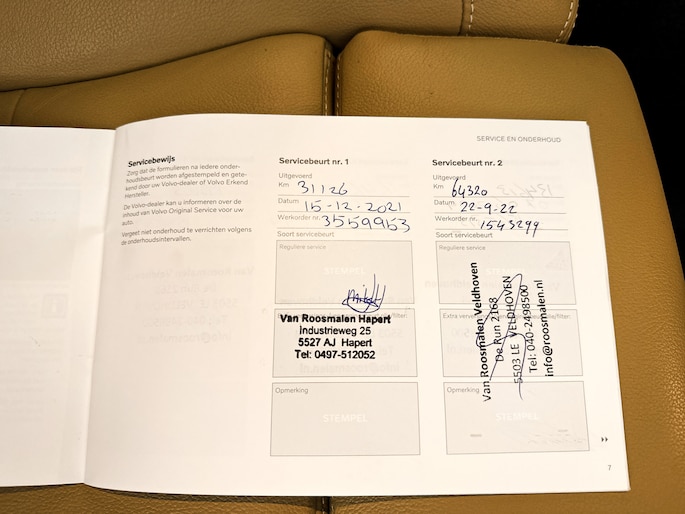 SERVICE EN ONDERHOUD
Servicebewijs
Zorg dat de formulieren na iedere onder-
houdsbeurt worden afgestempeld en gete-
kend door uw Volvo-dealer of Volvo Erkend
Hersteller.
De Volvo-dealer kan u informeren over de
inhoud van Volvo Original Service voor uw
auto.
Vergeet niet onderhoud te verrichten volgens
de onderhoudsintervallen.
Servicebeurt nr. 1
Uitgevoerd
Km 31126
Datum 15-12-2021
Werkorder nr. 3559953
Soort servicebeurt
Reguliere service
STEMPEL
Van Roosmalen Hapert
Industrieweg 25
5527 AJ Hapert
Tel: 0497-512052
Opmerking
STEMPEL
Servicebeurt nr. 2
Uitgevoerd
Km 64320
Datum 22-9-22
Werkorder nr. 1543299
Soort servicebeurt
Reguliere service
Extra
Van Roosmalen Veldhoven
De Run 2168
5503 LE VELDHOVEN
Tel: 040-2498500
info@roosmalen.nl
Opmerking
STEMPEL
7